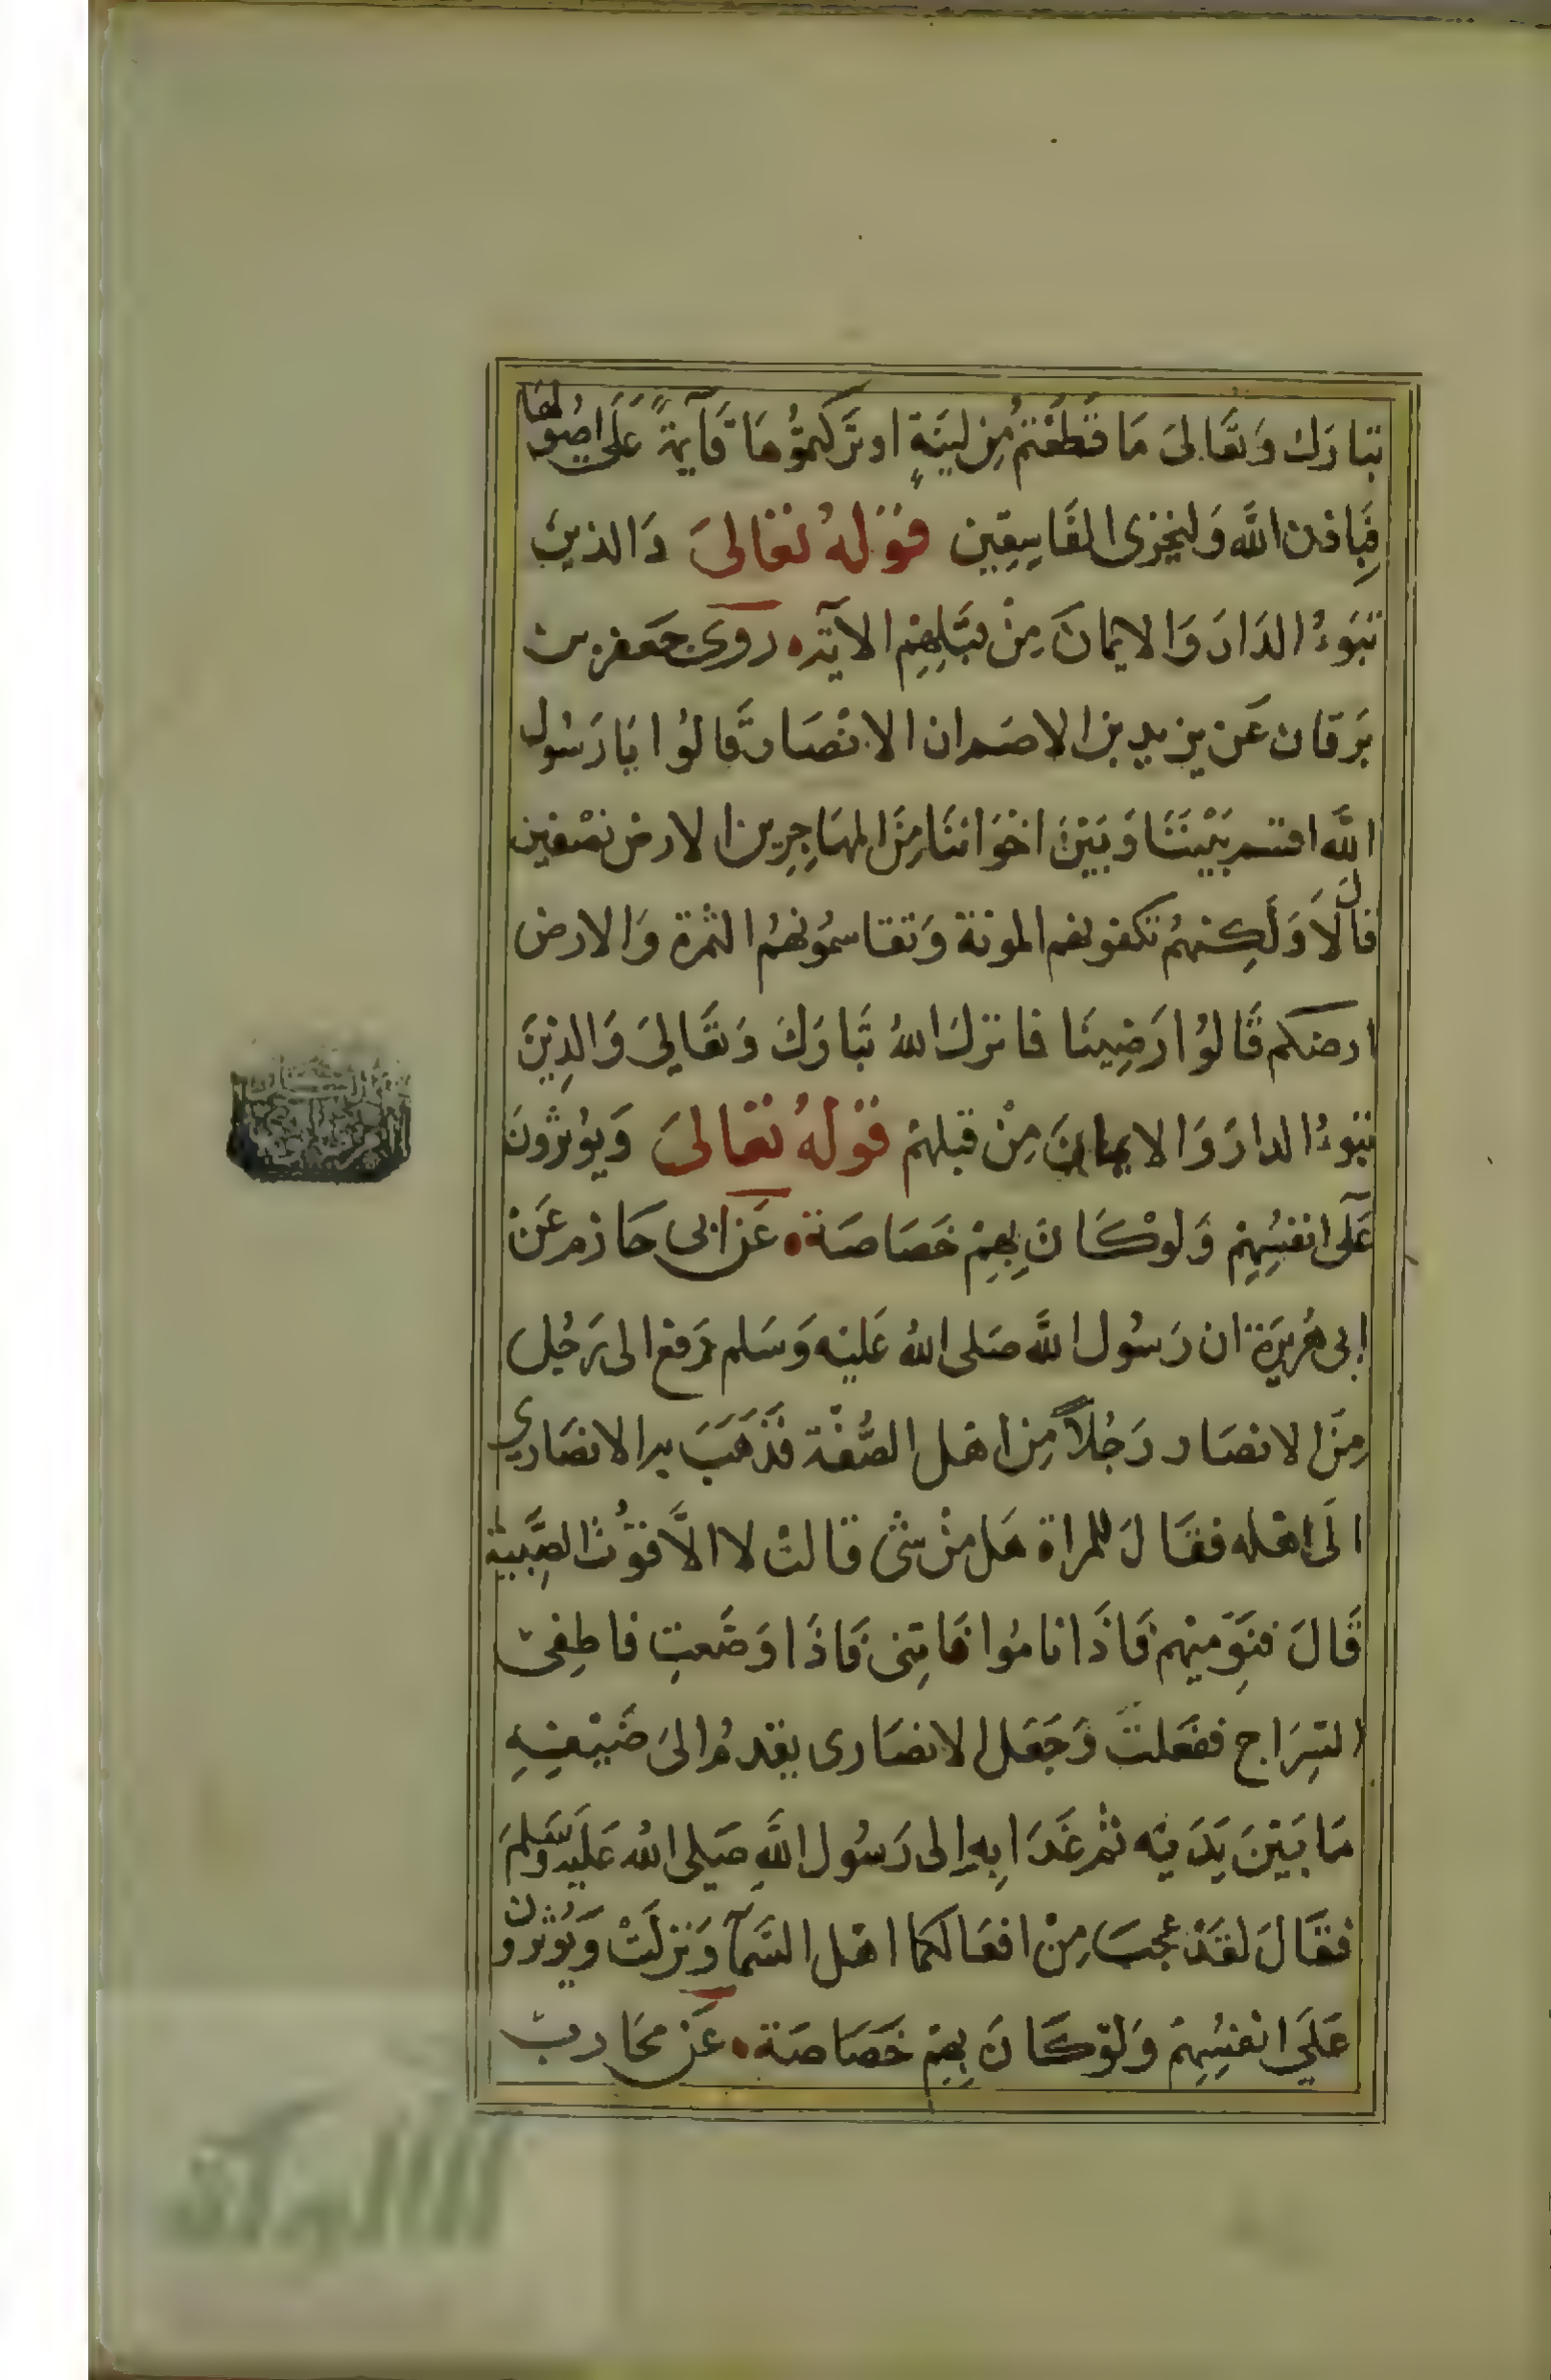 تبارَك وَتعَالىَ مَا قَطَعْتمُ مِن لِينَةٍ اوتَرَكتمُوُهَا قَآيمةً عَلَى اصُولهَا
فَبِاذن اللَّه وَليخزى الفَاسِقين قوَلهُ تعَالىَ وَالذينَ
تبَوءُ الدَارَ وَالايمانَ مِنْ قبَلِهِم الآيَه روَى جعفر بن
بَرقان عَن يزيد بن الاصم ان الانصَار قَالوُا يَا رَسُول
اللَّه اقسم بَيْنَنَا وَبَيْنَ اخْوَاننَا مِنَ المهَاجِرِين الارض نصْفين
قالَ لاَ وَلَكِنهُم تكفونهم المونة وَتقاسموُنهُم الثمْرة وَالارض
ارضكم قَالوُا رَضِينَا فانزل اللهُ تبَارَكَ وَتعَالىَ وَالذِينَ
تبوءُ الدارَ وَالايمانَ مِنْ قبلهمْ قوَلهُ تعَالىَ وَيوُثرُونَ
عَلَى انفسُِهِمْ وَلوْكَانَ بِهِمْ خَصَاصَة عَن ابى حَازم عَنْ
ابى هُرَيرَة ان رَسُول اللَّه صَلى اللهُ عَليْه وَسَلم دَفع الى رَجُل
مِنَ الانصَار رَجُلاً مِن اهل الصُّفَّة فَذَهَبَ به الانصَارِى
الَى اهله فقَالَ للمراة هَل مِنْ شئ قالتْ لا الاَّ قوُتُ الصِّبيَة
قَالَ فنَوِّميْهم فَاذَا نامُوا فَاتِنى فَاذَا وَضَعتِ فاطفِئى
السِّرَاج ففعَلتْ وَجَعَل الانصَارى يقدمُ الىَ ضَيْفِهِ
مَا بَيْنَ يَدَيْه ثم غَدَا بِه اِلى رَسُول اللَّهِ صَلى اللهُ عَليْه وَسَلمَ
فقَالَ لقَدْ عجبَ مِنْ افعَالكما اهل السَّمآ وَنزلَتْ وَيوُثرُون
عَلَى انفسُِهِمْ وَلوْكَانَ بِهِمْ خَصَاصَة عَن محَارب
الألوكة